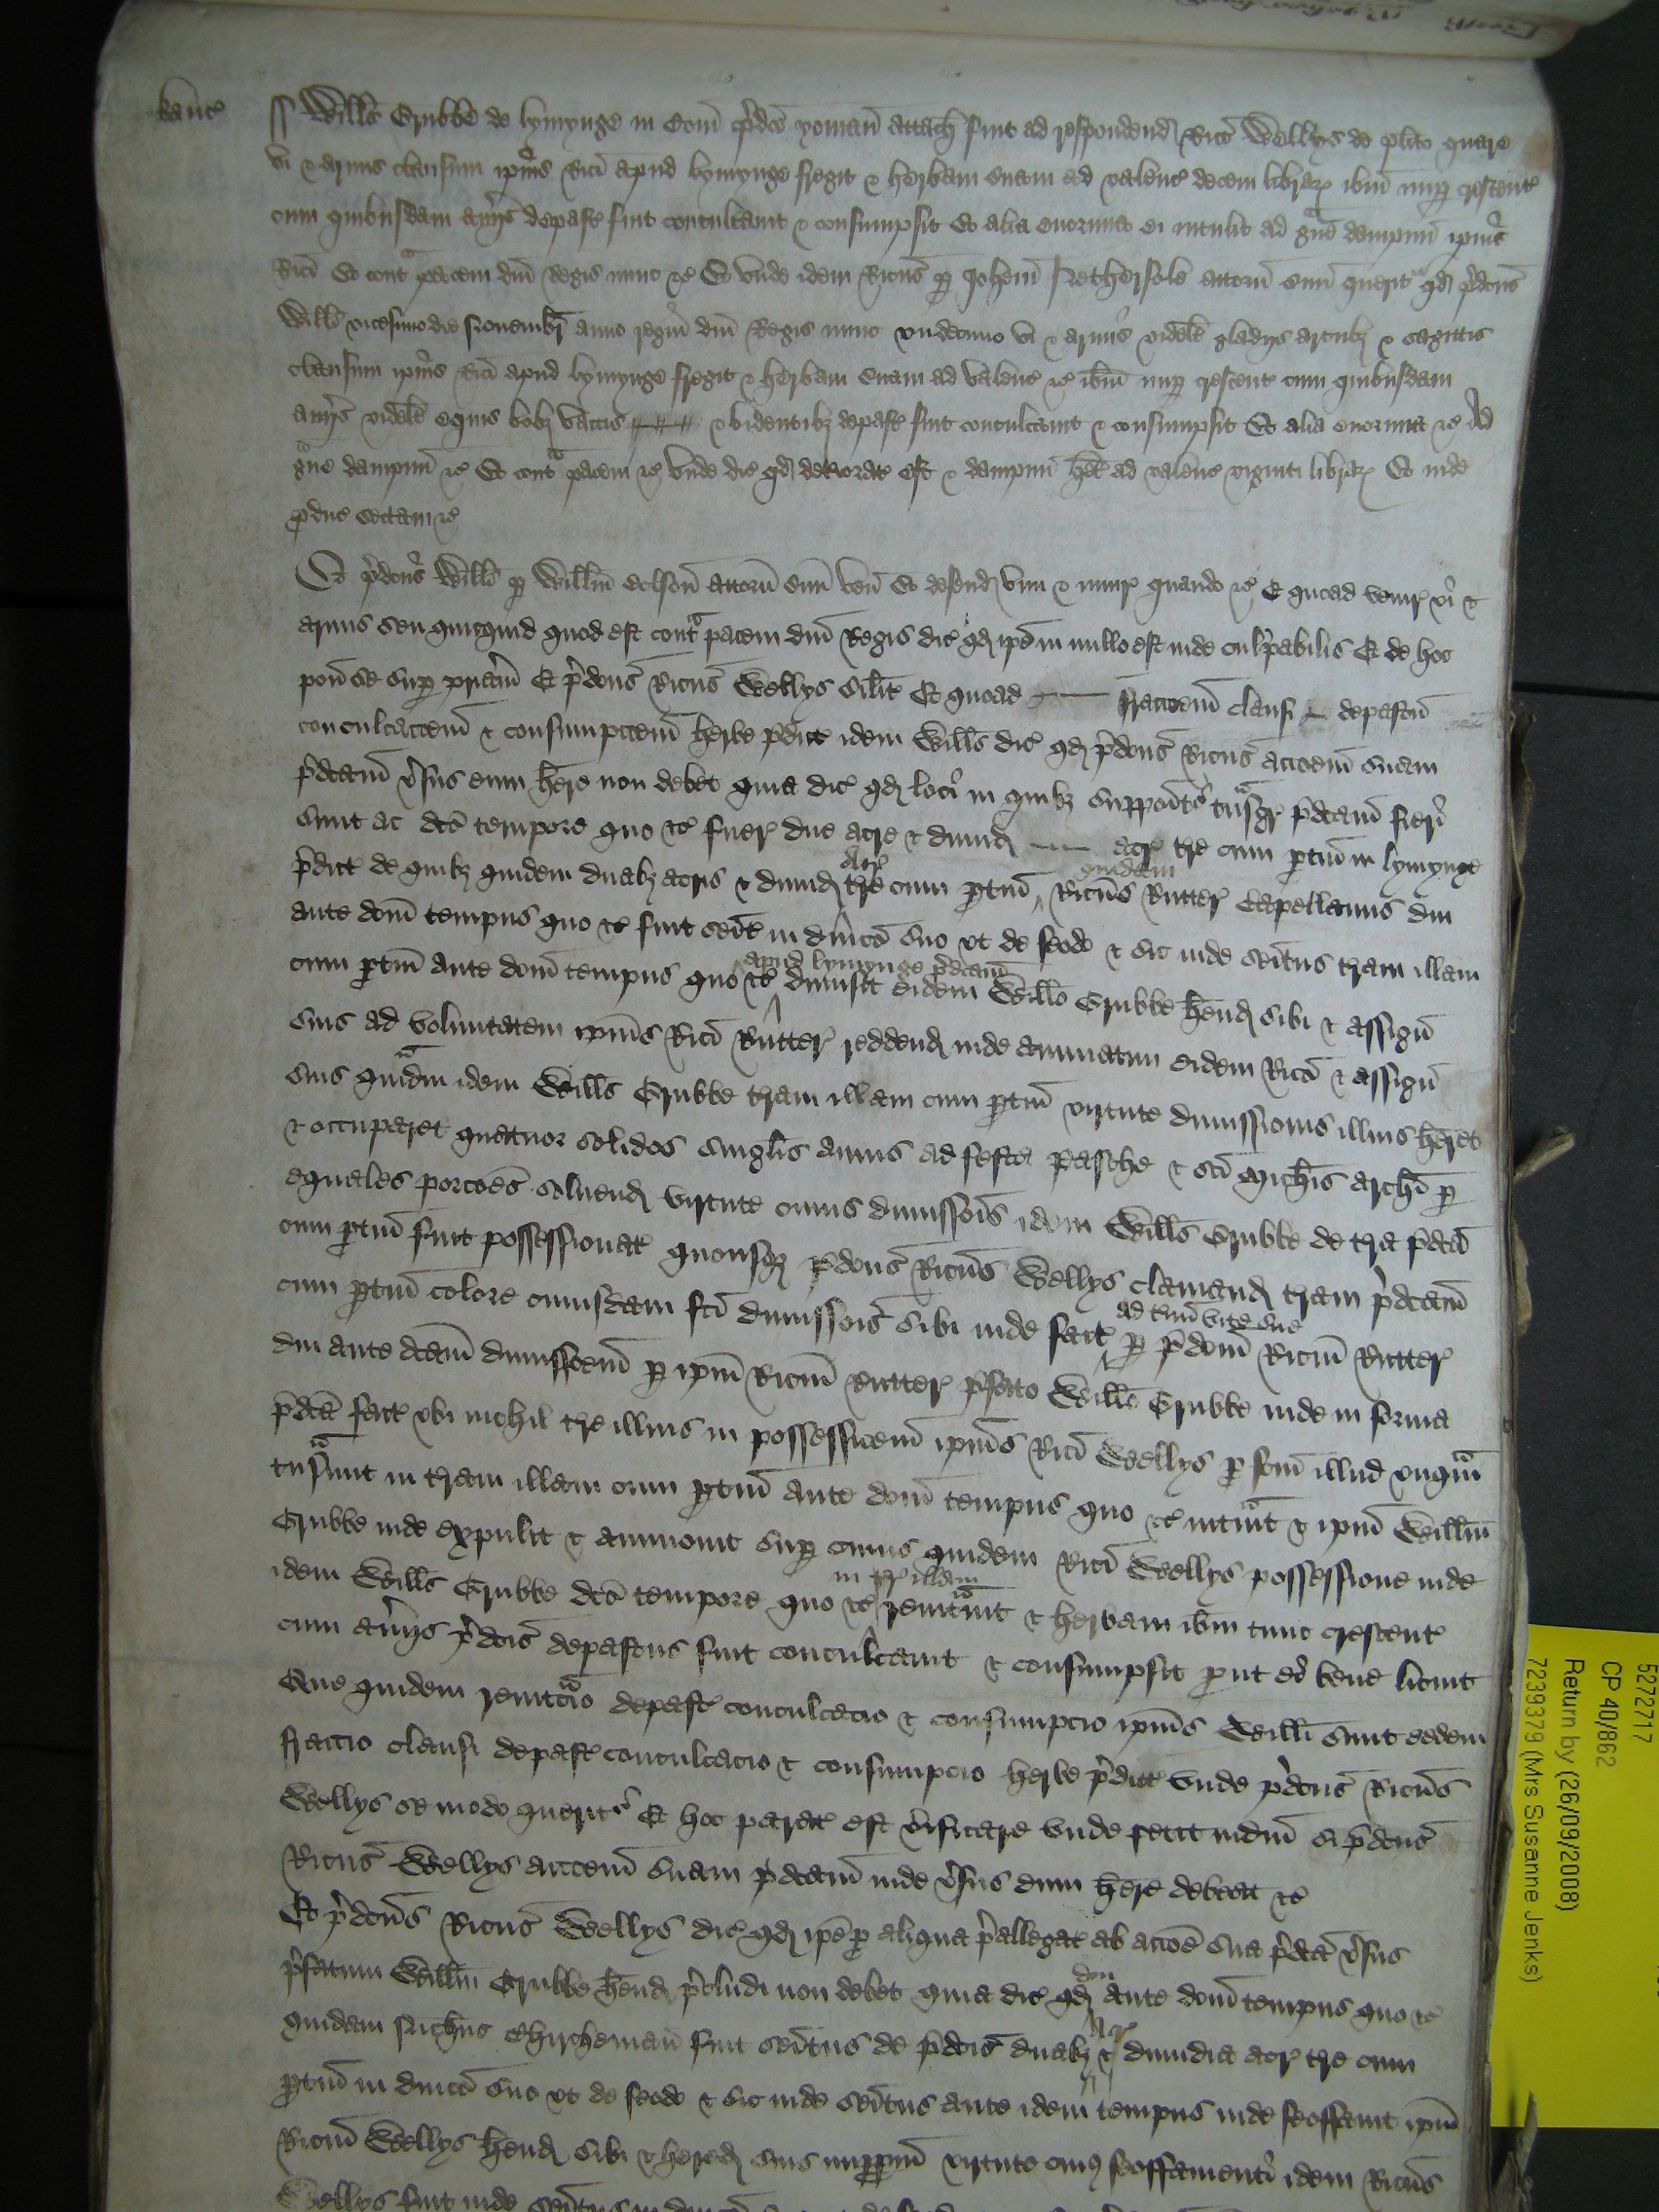 Kanc̄
ss Wills Grubbe de lymynge in Com̄ p̄dc̄o yoman̄ attach fuit ad respondend Ric̄o Wellys de pl̄ito quare
vi & armis clausum ip̄ius Ric̄i apud lymynge fregit & herbam suam ad valenc̄ decem librar̄ ib̄m nup̄ crescent̄
cum quibusdam aver̄ijs depast̄ fuit conculcavit & consumpsit Et alia enormia ei intulit ad gᵃve dampnū ip̄ius
Ric̄i Et contᵃ pacem dn̄i Regis nunc &c̄ Et unde idem Ric̄us p̄ Joh̄em Nethersole attorn̄ suū querit̄ qd p̄dc̄us
Wills vicesimo die Novembr̄ anno regni dn̄i Regis nunc undecimo vi & armis videlt̄ gladijs arcubȝ & sagittis
clausum ip̄ius Ric̄i apud lymynge fregit & herbam suam ad valenc̄ &c̄ ib̄m nup̄ crescent̄ cum quibusdam
aver̄ijs videlt̄ equis bobȝ vaccis & bidentibȝ depast̄ fuit conculcavit & consumpsit Et alia enormia &c̄ Ad
gᵃve dampnū &c̄ Et contᵃ pacem &c̄ unde dic̄ qd deteriorat̄ est & dampnū h̄et ad valenc̄ viginti librar̄ Et inde
p̄duc̄ sectam &c̄
Et p̄dc̄us Wills p̄ Willm̄ Eclson̄ attorn̄ suū ven̄ Et defend vim & iniur̄ quando &c̄ Et quoad venir̄ vi &
armis seu quicquid quod est contᵃ pacem dn̄i Regis dic̄ qd ip̄e in nullo est inde culpabilis Et de hoc
pon̄ se sup̄ pr̄iam̄ Et p̄dc̄us Ric̄us Wellys silit̄ Et quoad fracc̄oem̄ clausi depastū
conculcac̄oem̄ & consumpc̄oem̄ herbe p̄dict̄ idem Wills dic̄ qd p̄dc̄us Ric̄us acc̄oem̄ suam
p̄dc̄am̄ v̄sus eum h̄ere non debet quia dic̄ qd loci in quibȝ supponit̄ tᵃnsgr̄ p̄dc̄am̄ fieri
sunt ac dc̄o tempore quo &c̄ fuer̄ due acre & dimid acr̄ tr̄e cum p̄tin̄ in lymynge
p̄dict̄ de quibȝ quidem duabȝ acris & dimid Acr̄ tr̄e cum p̄tin̄ quidam Ric̄us Rutter̄ Capellanus diu
ante dc̄m̄ tempus quo &c̄ fuit sēit̄ in dn̄ico suo ut de feodo & sic inde sēitus tr̄am illam
cum p̄tin̄ ante dc̄m̄ tempus quo &c̄ apud lymynge p̄dc̄am̄ dimisit eidem Willo Grubbe h̄end sibi & assign̄
suis ad voluntatem ip̄ius Ric̄i Rutter̄ reddend inde annuatim eidem Ric̄o & assign̄
suis quᵃmdiu idem Wills Grubbe tr̄am illam cum p̄tin̄ virtute dimissionis illius h̄eret
& occuparet quatuor solidos singlis annis ad festa Pasche & sc̄i Mich̄is archi p̄
equales porc̄oes solvend virtute cuius dimissōis idem Wills Grubbe de tr̄a p̄dc̄a
cum p̄tin̄ fuit possessionat̄ quousqȝ p̄dc̄us Ric̄us Wellys clamand tr̄am p̄dc̄am̄
cum p̄tin̄ colore cuiusdam fc̄i dimissōis sibi inde fact̄ ad t̄m̄ vite sue p̄ p̄dc̄m̄ Ric̄um Rutter̄
diu ante dc̄am̄ dimissōem̄ p̄ ip̄m̄ Ric̄um Rutter̄ p̄fato Willo Grubbe inde in forma
p̄dc̄a fact̄ ubi nichil tr̄e illius in possessōem̄ ip̄ius Ric̄i Wellys p̄ fc̄m̄ illud unqᵃm
tᵃnsivit in tr̄am illam cum p̄tin̄ ante dc̄m̄ tempus quo &c̄ intᵃvit & ip̄m̄ Willm̄
Grubbe inde expulit & ammovit sup̄ cuius quidem Ric̄i Wellys possessione inde
idem Wills Grubbe dc̄o tempore quo &c̄ in tr̄ illam reintᵃvit & herbam ib̄m tunc crescent̄
cum aver̄ijs p̄dc̄is depastus fuit conculcavit & consumpsit p̄ut ei bene licuit
Que quidem reintᵃcio depast̄ conculcacio & consumpcio ip̄ius Willi sunt eedem
fraccio clausi depast̄ conculcacio & consumpcio herbe p̄dict̄ unde p̄dc̄us Ric̄us
Wellys se modo querit̄ Et hoc parat̄ est v̄ificare unde petit iudiū si p̄dc̄us
Ric̄us Wellys acc̄oem̄ suam p̄dc̄am̄ inde v̄sus eum h̄ere debeat &c̄
Et p̄dc̄us Ric̄us Wellys dic̄ qd ip̄e p̄ aliqua p̄allegat̄ ab acc̄oe sua p̄dc̄a v̄sus
p̄fatum Willm̄ Grubbe h̄end p̄cludi non debet quia dic̄ qd diu ante dc̄m̄ tempus quo &c̄
quidam Chircheman̄ fuit sēitus de p̄dc̄is duabȝ Acr̄ & dimidia acr̄ tr̄e cum
p̄tin̄ in dn̄ico suo ut de feodo & sic inde sēitus ante idem tempus inde feoffavit ip̄m̄
Ric̄um Wellys h̄end sibi & hered suis imp̄p̄m̄ virtute cuiꝰ feoffamenti idem Ric̄us
Wellys fuit inde
5272717
CP 40/862
Return by (26/09/2008)
7239379 (Mrs Susanne Jenks)